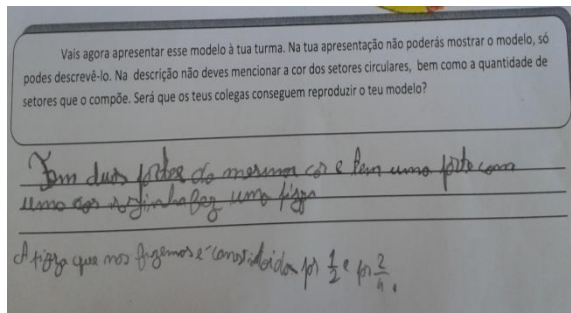 Vais agora apresentar esse modelo à tua turma. Na tua apresentação não poderás mostrar o modelo, só
podes descrevê-lo. Na descrição não deves mencionar a cor dos setores circulares, bem como a quantidade de
setores que o compõe. Será que os teus colegas conseguem reproduzir o teu modelo?
Tem duas partes da mesma cor e tem uma parte com
uma cor sozinha faz uma pizza
A pizza que nos fizemos é constituida por 1/2 e por 2/4.